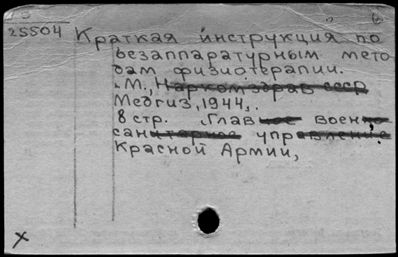 25504
Краткая инструкция по
безаппаратурным мето
дам физиотерапии.
М., Наркомздрав ссср
Медгиз, 1944.
8 стр. Главное военно
санитарное управление
Красной Армии,
x